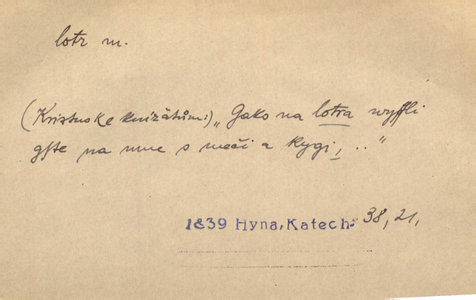 lotr m.
(Kristus ke knížatům:) „Gako na lotra wyſſli
gſte na mne s meči a kygi, ..."
1839 Hyna, Katech. 38, 21,